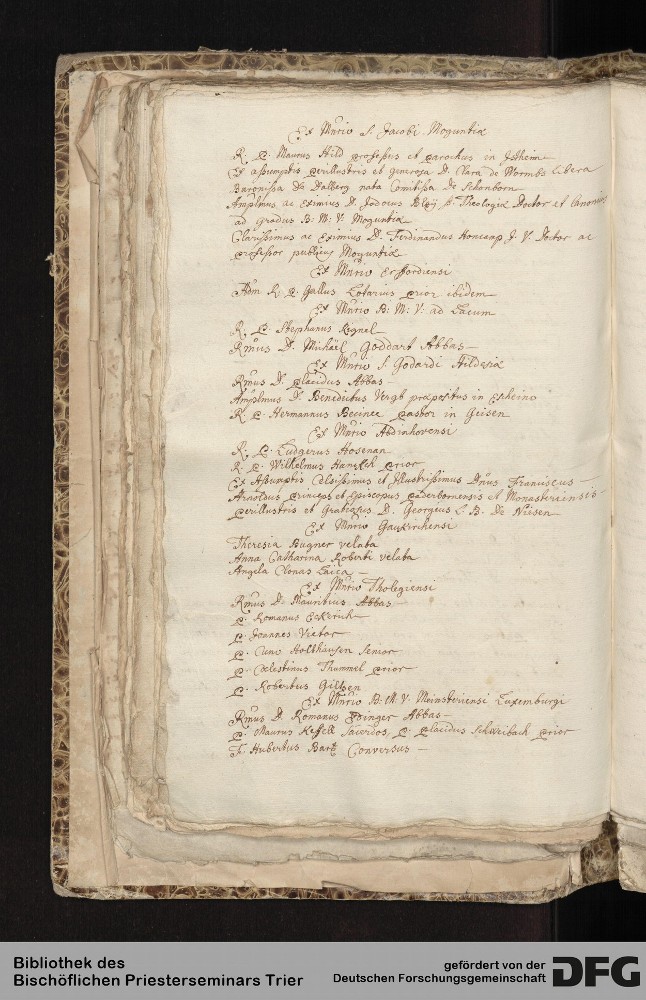 Ex Mrio S. Jacobi Moguntiæ
R. P. Maurus Hild professus et parochus in
Ex assumptis perillustris et generosa D. Clara de Wormbs libera
Baronissa De Dalberg nata Comitissa de Schonborn
Amplmus ac Eximius D. Jodocus S. Theologiæ Doctor et Canonicus
ad Gradus B. M. V. Moguntiæ
Clarissimus ac Eximius D. Ferdinandus J. V. Doctor ac
professor publicus Moguntiæ
Ex Mrio Erffordiensi
Adm R. P. Gallus Lotarius prior ibidem
Ex Mrio B. M. V. ad Lacum
R. P. Stephanus
Rmus D. Michaël Goddart Abbas
Ex Mrio S. Godardi Hildesiæ
Rmus D. Placidus Abbas
Amplmus D. Benedictus præpositus in
R. P. Hermannus Becinee pastor in Geisen
Ex Mrio Abdinhovensi
R. P. Ludgerus Hosenan
R. P. Wilhelmus prior
Ex Assumptis Celsissimus et Illustrissimus Dnus Franciscus
Arnoldus princeps et Episcopus paderbornensis et Monasteriensis
perillustris et Gratiosus D. Georgeus L. B. De Niesen
Ex Mrio Gaukirchensi
Theresia Bugner velata
Anna Catharina Roberti velata
Angela Clonas Laica
Ex Mrio Tholegiensi
Rmus D. Mauritius Abbas
P. Romanus Eckerich
P. Joannes Vietor
P. Cuno Holthausen senior
P. Celestinus Thummel prior
P. Robertus Giltzen
Ex Mrio B. M. V. Meinsteriensi Luxemburgi
Rmus D. Romanus Abbas
P. Maurus Kessell sacerdos, P. Placidus Schweibach prior
F. Hubertus Bartz Conversus
Bibliothek des
Bischöflichen Priesterseminars Trier
gefördert von der
Deutschen Forschungsgemeinschaft
DFG